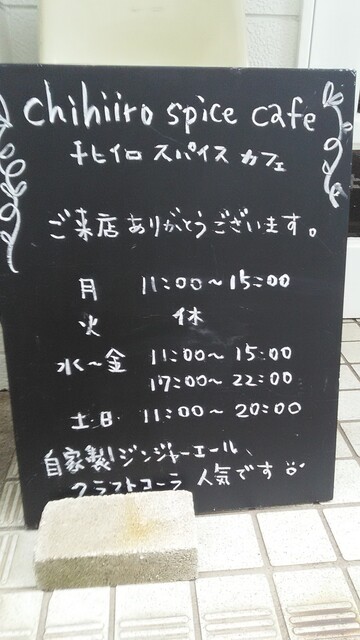 chihiiro spice cafe
チヒイロ スパイス カフェ
ご来店ありがとうございます。
月 11:00~15:00
火 休
水~金 11:00~15:00
17:00~22:00
土日 11:00~20:00
自家製ジンジャーエール、
クラフトコーラ 人気です